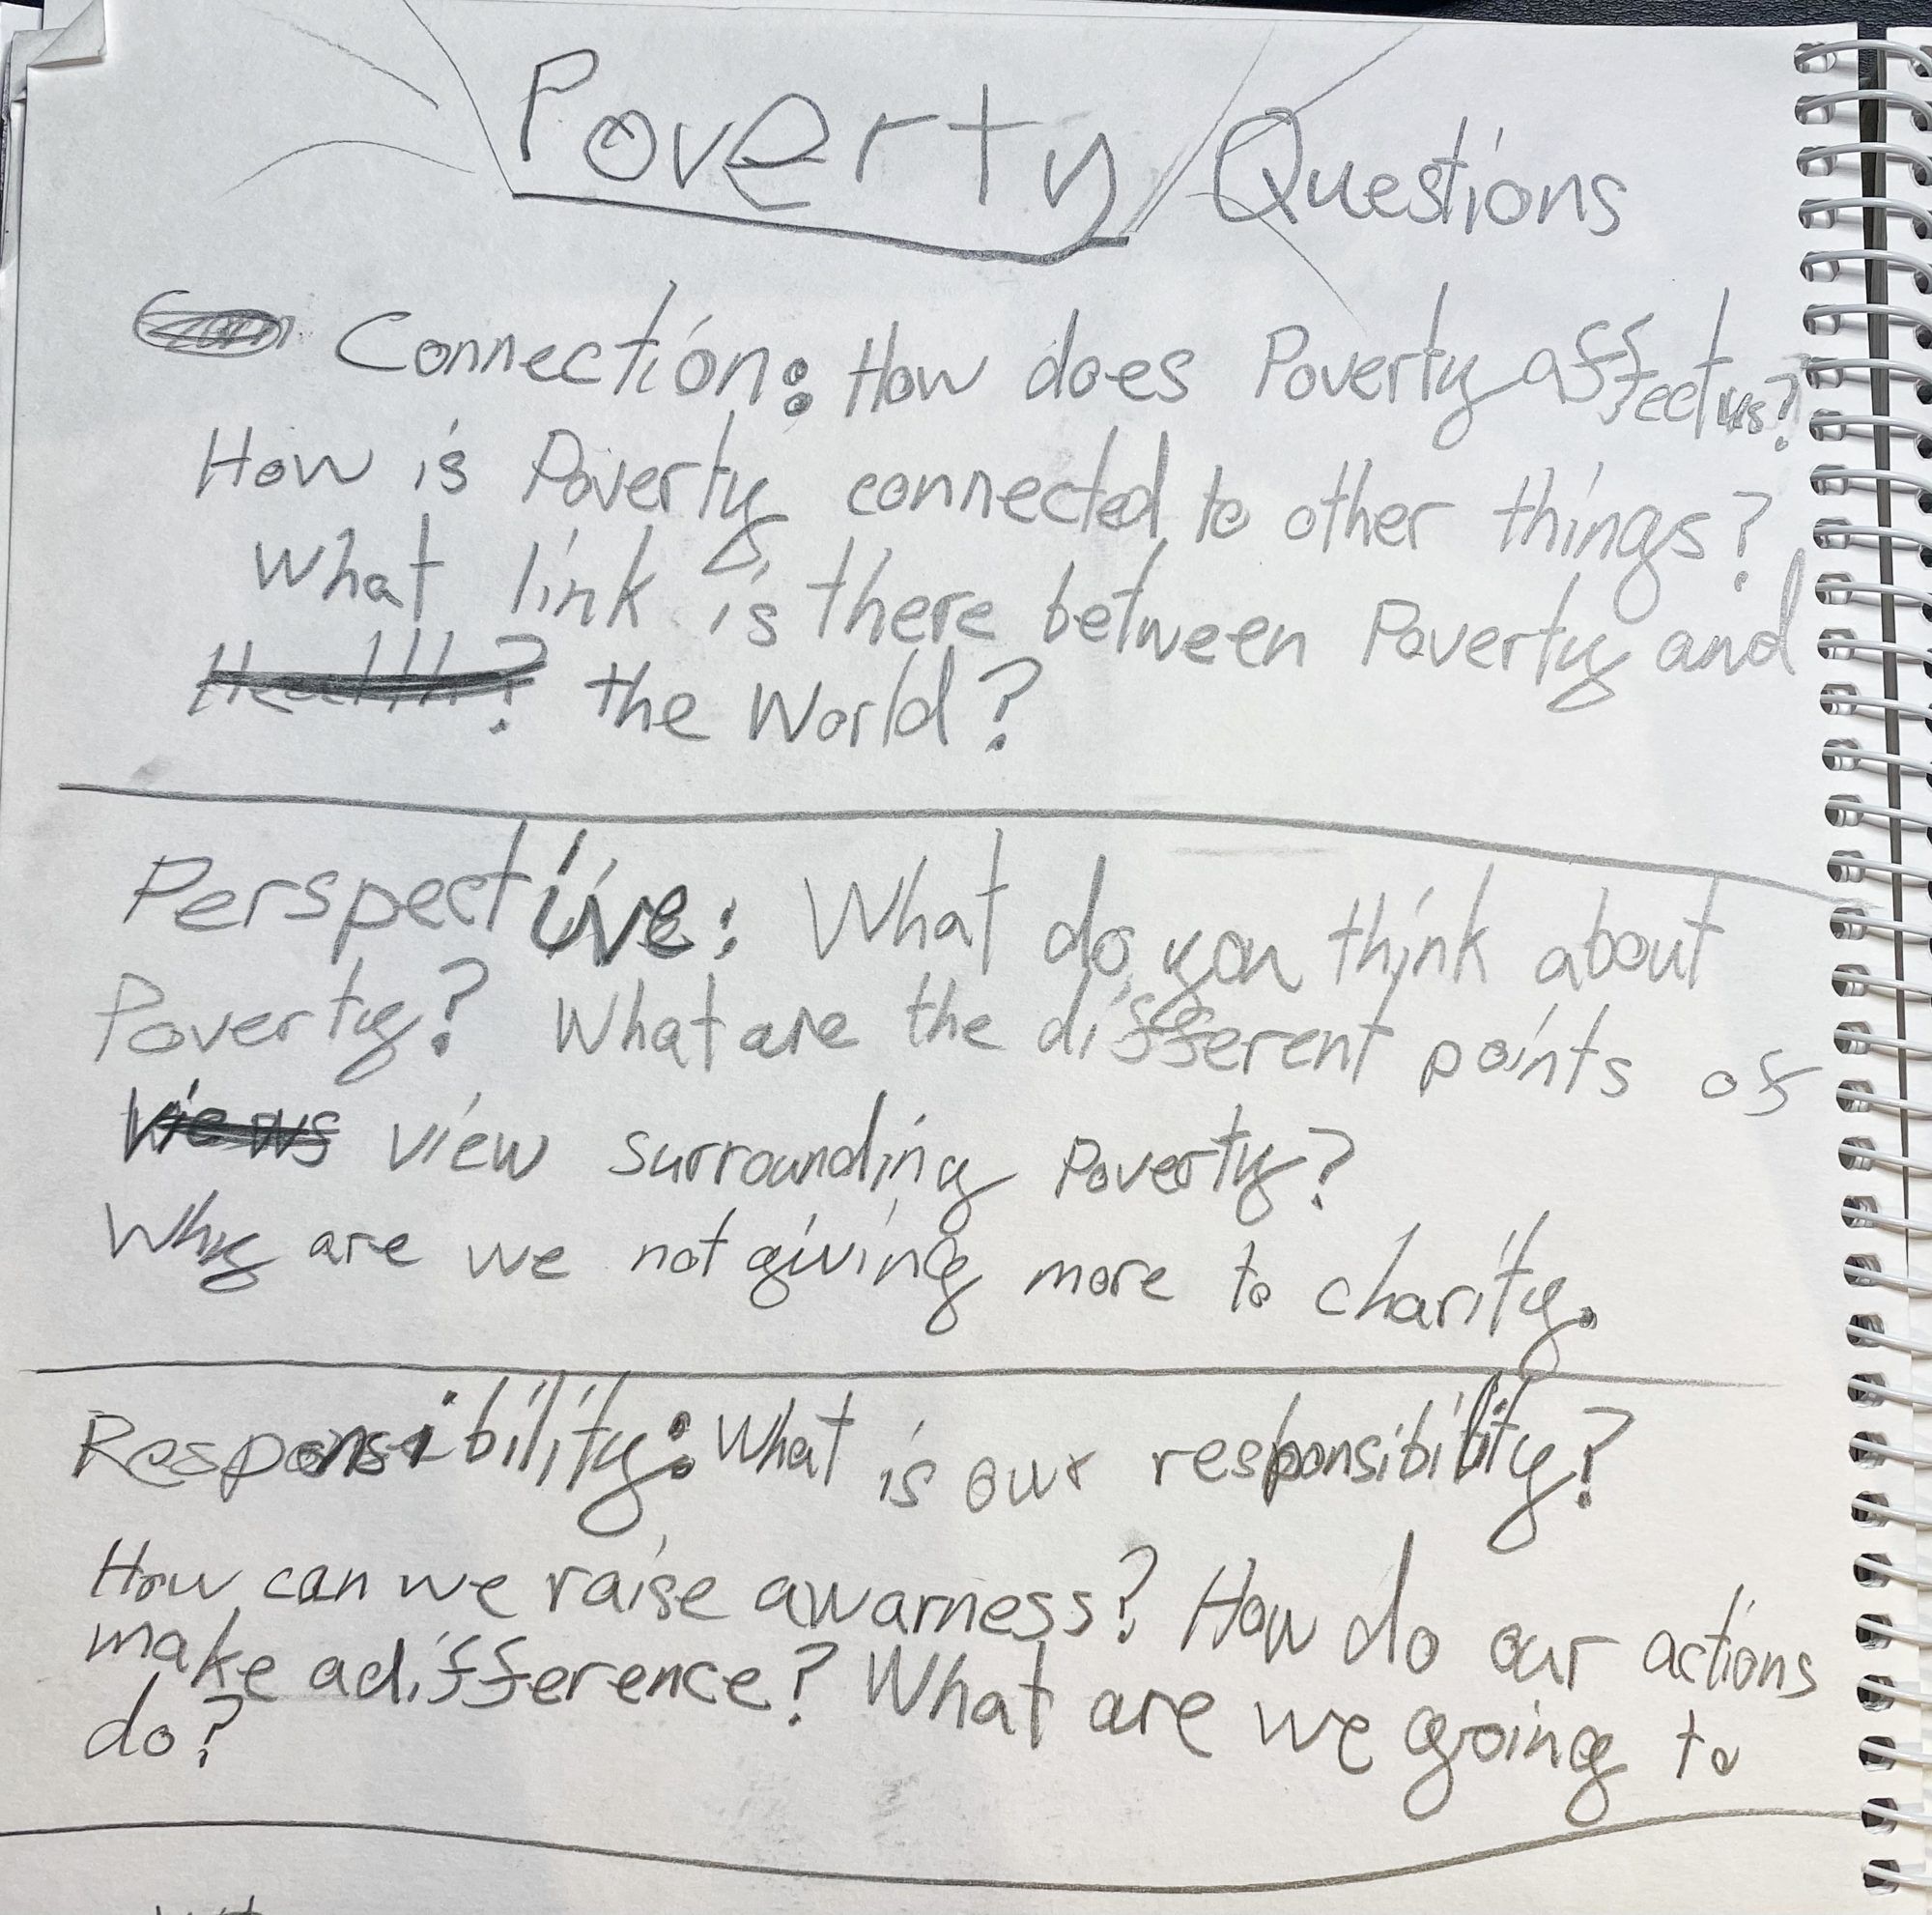 Poverty Questions
Connection: How does Poverty affect us?
How is Poverty connected to other things?
What link is there between Poverty and
Health? the World?
Perspective: What do you think about
Poverty? What are the different points of
Views view surrounding Poverty?
Why are we not giving more to charity.
Responsibility: What is our responsibility?
How can we raise awarness? How do our actions
make a difference? What are we going to
do?